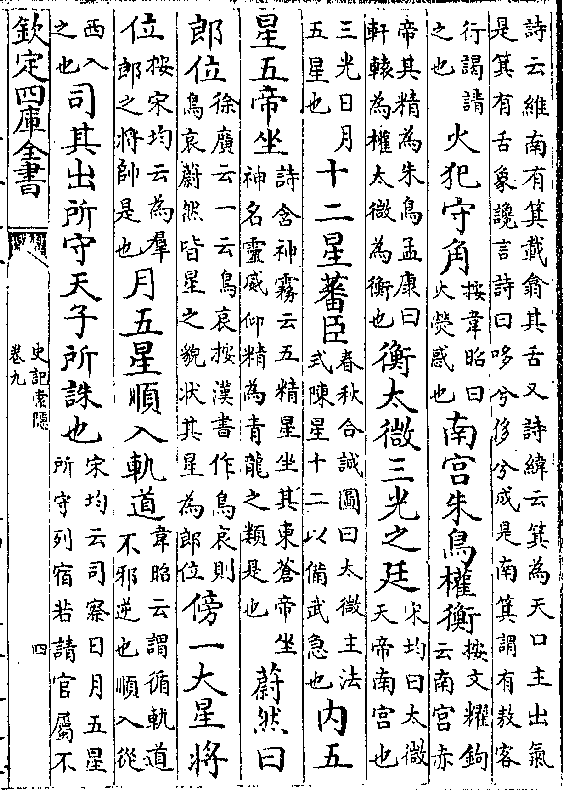 詩云維南有箕載翕其舌又詩緯云箕為天口主出氣
是箕有舌象讒言詩曰哆兮侈兮成是南箕謂有敖客
行謁請
之也
火犯守角
按韋昭曰
火熒惑也
南宮朱鳥權衡
按文耀鉤
云南宮赤
帝其精為朱鳥孟康曰
軒轅為權太微為衡也
衡太微三光之廷
宋均曰太微
天帝南宮也
三光日月
五星也
十二星蕃臣
春秋合誠圖曰太微主法
式陳星十二以備武急也
内五
星五帝坐
詩含神霧云五精星坐其東蒼帝坐
神名靈威仰精為青龍之類是也
蔚然曰
郎位
徐廣云一云鳥哀按漢書作鳥哀則
鳥哀蔚然皆星之貌狀其星為郎位
傍一大星將
位
按宋均云為羣
郎之將帥是也
月五星順入軌道
韋昭云謂循軌道
不邪逆也順入從
西入
之也
司其出所守天子所誅也
宋均云司察日月五星
所守列宿若請官屬不
欽定四庫全書
史記索隱
卷九
四